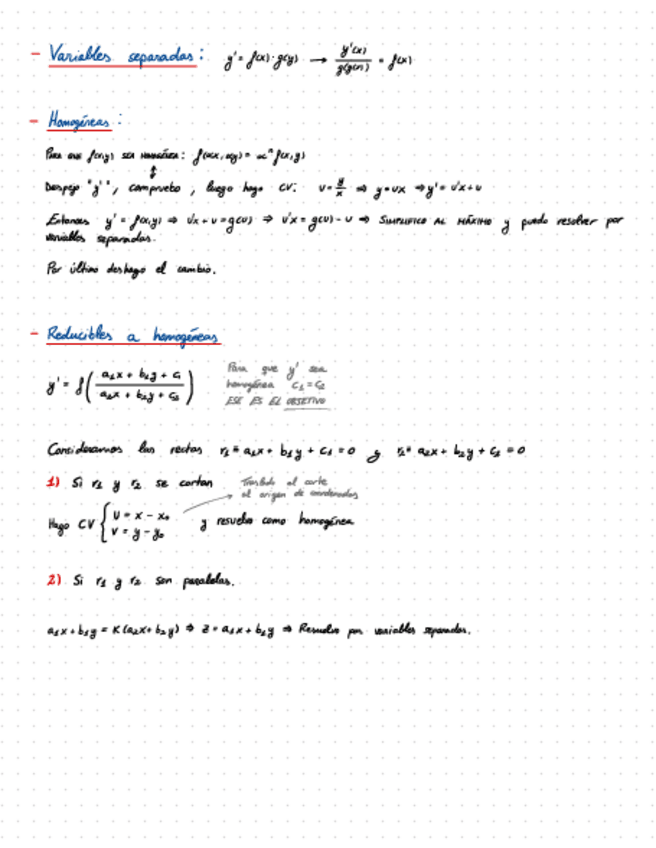 - Variables separadas: y' = f(x)·g(y) → y'(x)/g(y(x)) = f(x)
- Homogéneas:
Para que f(x,y) sea homogénea: f(αx, αy) = α^n f(x,y)
↕
Despejo "y'", compruebo, luego hago CV: u = y/x ⇒ y = ux ⇒ y' = u'x + u
Entonces y' = f(x,y) ⇒ u'x + u = g(u) ⇒ u'x = g(u) - u ⇒ SIMPLIFICO AL MÁXIMO y puedo resolver por
variables separadas.
Por último deshago el cambio.
- Reducibles a homogéneas
y' = f((a₁x + b₁y + c₁)/(a₂x + b₂y + c₂))
Para que y' sea
homogénea c₁=c₂
ESE ES EL OBJETIVO
Consideramos las rectas r₁ ≡ a₁x + b₁y + c₁ = 0 y r₂ ≡ a₂x + b₂y + c₂ = 0
1) Si r₁ y r₂ se cortan
Traslado el corte
al origen de coordenadas
Hago CV { u = x - x₀
v = y - y₀
y resuelvo como homogénea
2) Si r₁ y r₂ son paralelas.
a₁x + b₁y = K(a₂x + b₂y) ⇒ z = a₁x + b₁y ⇒ Resuelvo por variables separadas.